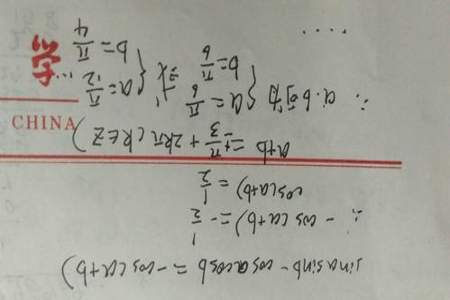 sinasinb - cosacosb = -cos(a+b)
∴ -cos(a+b) = -1/2
cos(a+b) = 1/2
a+b = ±π/3 + 2kπ (k∈Z)
∴ a.b可为 { a=π/6 b=π/6 或 { a=π/12 b=π/4 ...
....
学
CHINA